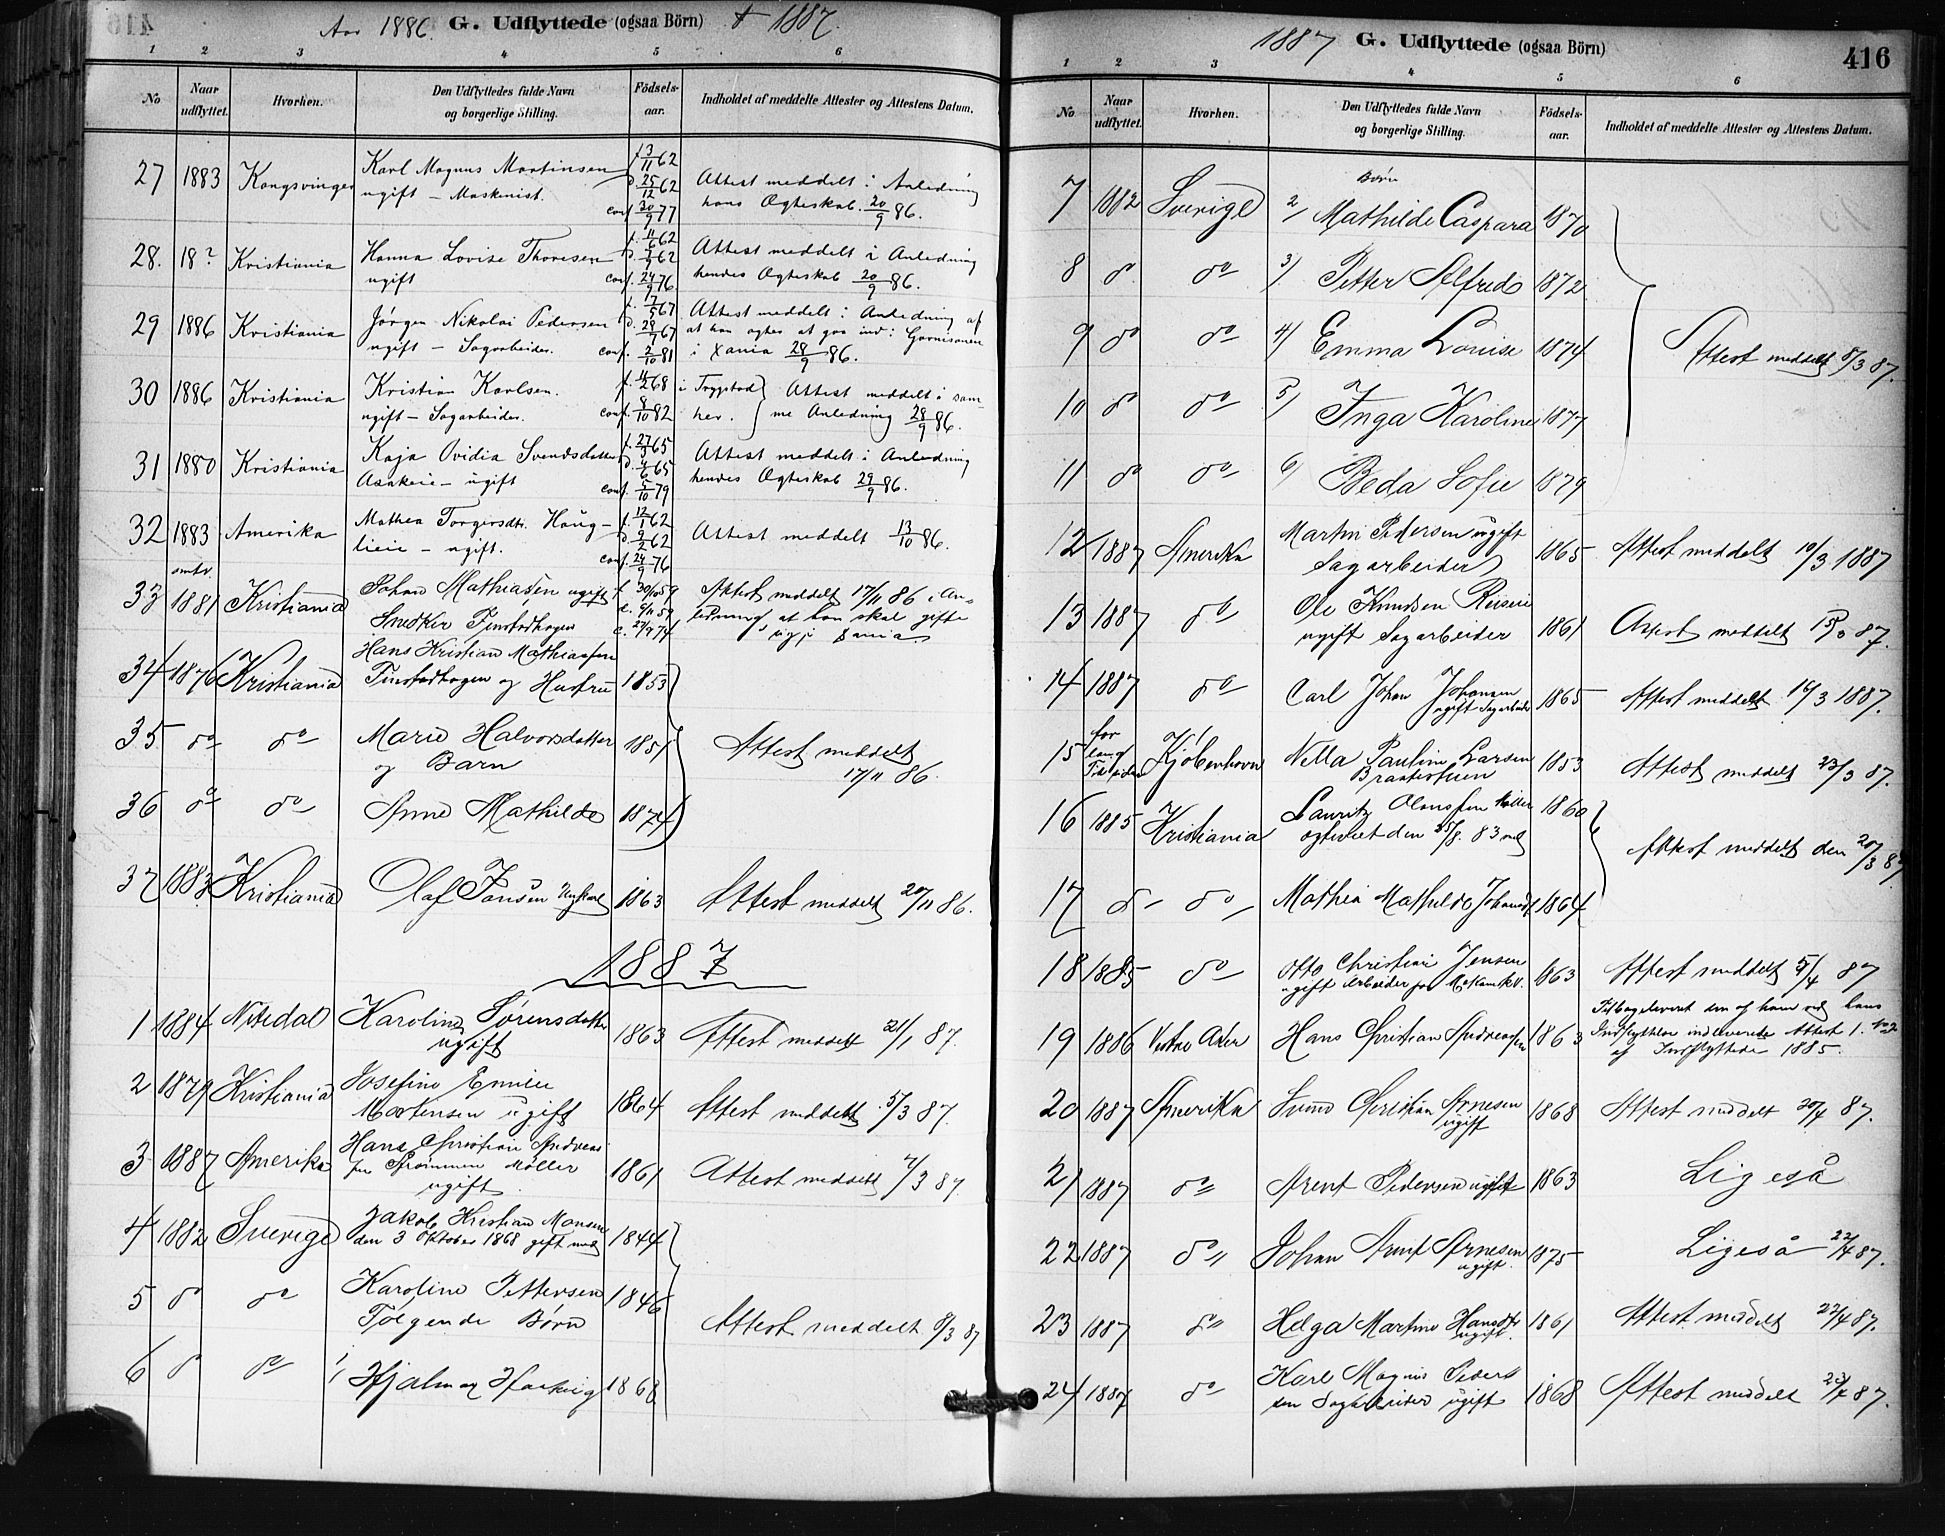 Aar 1886. G. Udflyttede (ogsaa Börn) & 1887.
1 2 3 4 5 6
No
Naar udflyttet.
Hvorhen.
Den Udflyttedes fulde Navn og borgerlige Stilling.
Födsels-aar.
Indholdet af meddelte Attester og Attestens Datum.
27 1883 Kongsvinger Karl Magnus Martinsen f. 13/11 62
ugift – Maskinist. d. 25/12 62 Attest meddelt i Anledning
conf. 30/9 77 hans Ægteskab. 20/9 86.
28. 18? Kristiania Hanna Lovise Thoresen 62 Attest meddelt i Anledning
ugift conf. 24/9 76 hendes Ægteskab 20/9 86.
29 1886 Kristiania Jörgen Nikolai Pedersen f. 17/5 67 Attest meddelt i Anledning af
ugift – Sagarbeider. d. 28/7 67 at han agter at gaa ind i Garnisonen
conf. 2/10 81 i Xania 28/9 86.
30 1886 Kristiania Kristian Karlsen. f. 11/2 68 i Trygstad Attest meddelt i sam-
ugift – Sagarbeider. conf. 8/10 82 her. me Anledning 28/9 86.
31 1880 Kristiania Kaja Ovidia Svendsdatter f. 27/3 65 Attest meddelt i Anledning
Asakeie – ugift 65 hendes Ægteskab 29/9 86.
conf. 5/10 79
32 1883 Amerika Mathea Torgersdtr. Haug- f. 12/1 62 Attest meddelt 13/10 86.
lieie – ugift. d. 9/2 62
conf. 24/9 76
33 omtr. 1881 Kristiania Johan Mathiasen ugift f. 30/10 59 Attest meddelt 17/11 86 i An-
Snedker Finstadhagen 27/9 74 ledning, at han skal gifte
sig i Xania
34 1876 Kristiania Hans Kristian Mathiassen
Finstadhagen og Hustru 1853
35 do do Marie Halvorsdatter 1851 Attest meddelt
og Barn 17/11 86.
36 do do Anne Mathilde 1874
37 1883 Kristiania Olaf Jansen Ungkarl 1863 Attest meddelt 20/11 86.
1887
1 1884 Nitedal Karoline Sörensdatter 1863 Attest meddelt 21/1 87.
ugift
2 1879 Kristiania Josefine Emilie
Mortensen ugift 1864 Attest meddelt 5/3 87.
3 1887 Amerika Hans Christian Andreas
sen Strömmen Möller 1861 Attest meddelt 7/3 87.
ugift
4 1882 Sverige Jakob Kristian Monsen
den 3 Oktober 1868 gift med 1844
5 do do Karoline Pettersen 1846
Fölgende Börn Attest meddelt 8/3 87
6 do do 1/ Hjalmar Hartvig 1868
1887 G. Udflyttede (ogsaa Börn) 416
1 2 3 4 5 6
No
Naar udflyttet.
Hvorhen.
Den Udflyttedes fulde Navn og borgerlige Stilling.
Födsels-aar.
Indholdet af meddelte Attester og Attestens Datum.
Börn
7 1882 Sverige 2/ Mathilde Caspara 1870
8 do do 3/ Petter Alfred 1872
9 do do 4/ Emma Louise 1874 Attest meddelt 8/3 87.
10 do do 5/ Inga Karoline 1877
11 do do 6/ Beda Sofie 1879
12 1887 Amerika Martin Pedersen ugift 1865 Attest meddelt 10/3 1887
Sagarbeider
13 1887 do Ole Knudsen
ugift Sagarbeider 1861 Attest meddelt 87.
14 1887 do Carl Johan Johansen 1865 Attest meddelt 16/3 1887.
ugift Sagarbeider
15 for lang Tid siden Kjöbenhavn Nella Pauline Larsen 1853 Attest meddelt 23/3 87.
Braatestuen
16 1885 Kristiania Lauritz Olaussen Möller 1860
ægteviet den 25/8. 83 med Attest meddelt den 20/3 87.
17 do do Mathea Mathilde Johansd. 1864
18 1885 do Otto Christian Jensen 1863 Attest meddelt 5/4 87
ugift Arbeider
19 1886 Vestre Aker Hans Christian Andreassen 1863 Tilbageleveret den af ham ved hans
Indflyttelse indleverede Attest
af Indflyttede 1885.
20 1887 Amerika Svend Christian Arnesen 1868 Attest meddelt 20/4 87.
ugift
21 1887 do Arent Pedersen ugift 1863 Ligeså
22 1887 do Johan Arent Arnesen 1875 Ligeså 22/4 87.
ugift
23 1887 do Helga Martine Hansdtr 1861 Attest meddelt 22/4 87.
ugift
24 1887 do Karl Magnus Peder
sen Sagarbeider ugift 1868 Attest meddelt 23/4 87.